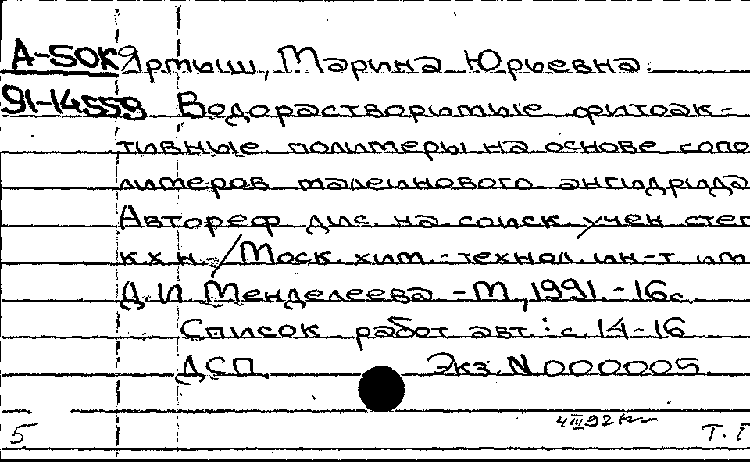 А-50К Яртыш, Марина Юрьевна.
91-14559 Водорастворимые фитоак-
тивные полимеры на основе сопо
лимеров малеинового ангидрида
Автореф дис. на соиск. учен степ
к.х.н. / Моск. хим.-технол. ин-т им
Д.И Менделеева. - М., 1991. - 16с.
Список работ авт.: с. 14-16
ДСП. Экз. N 000005.
4 III 92
5 Т.